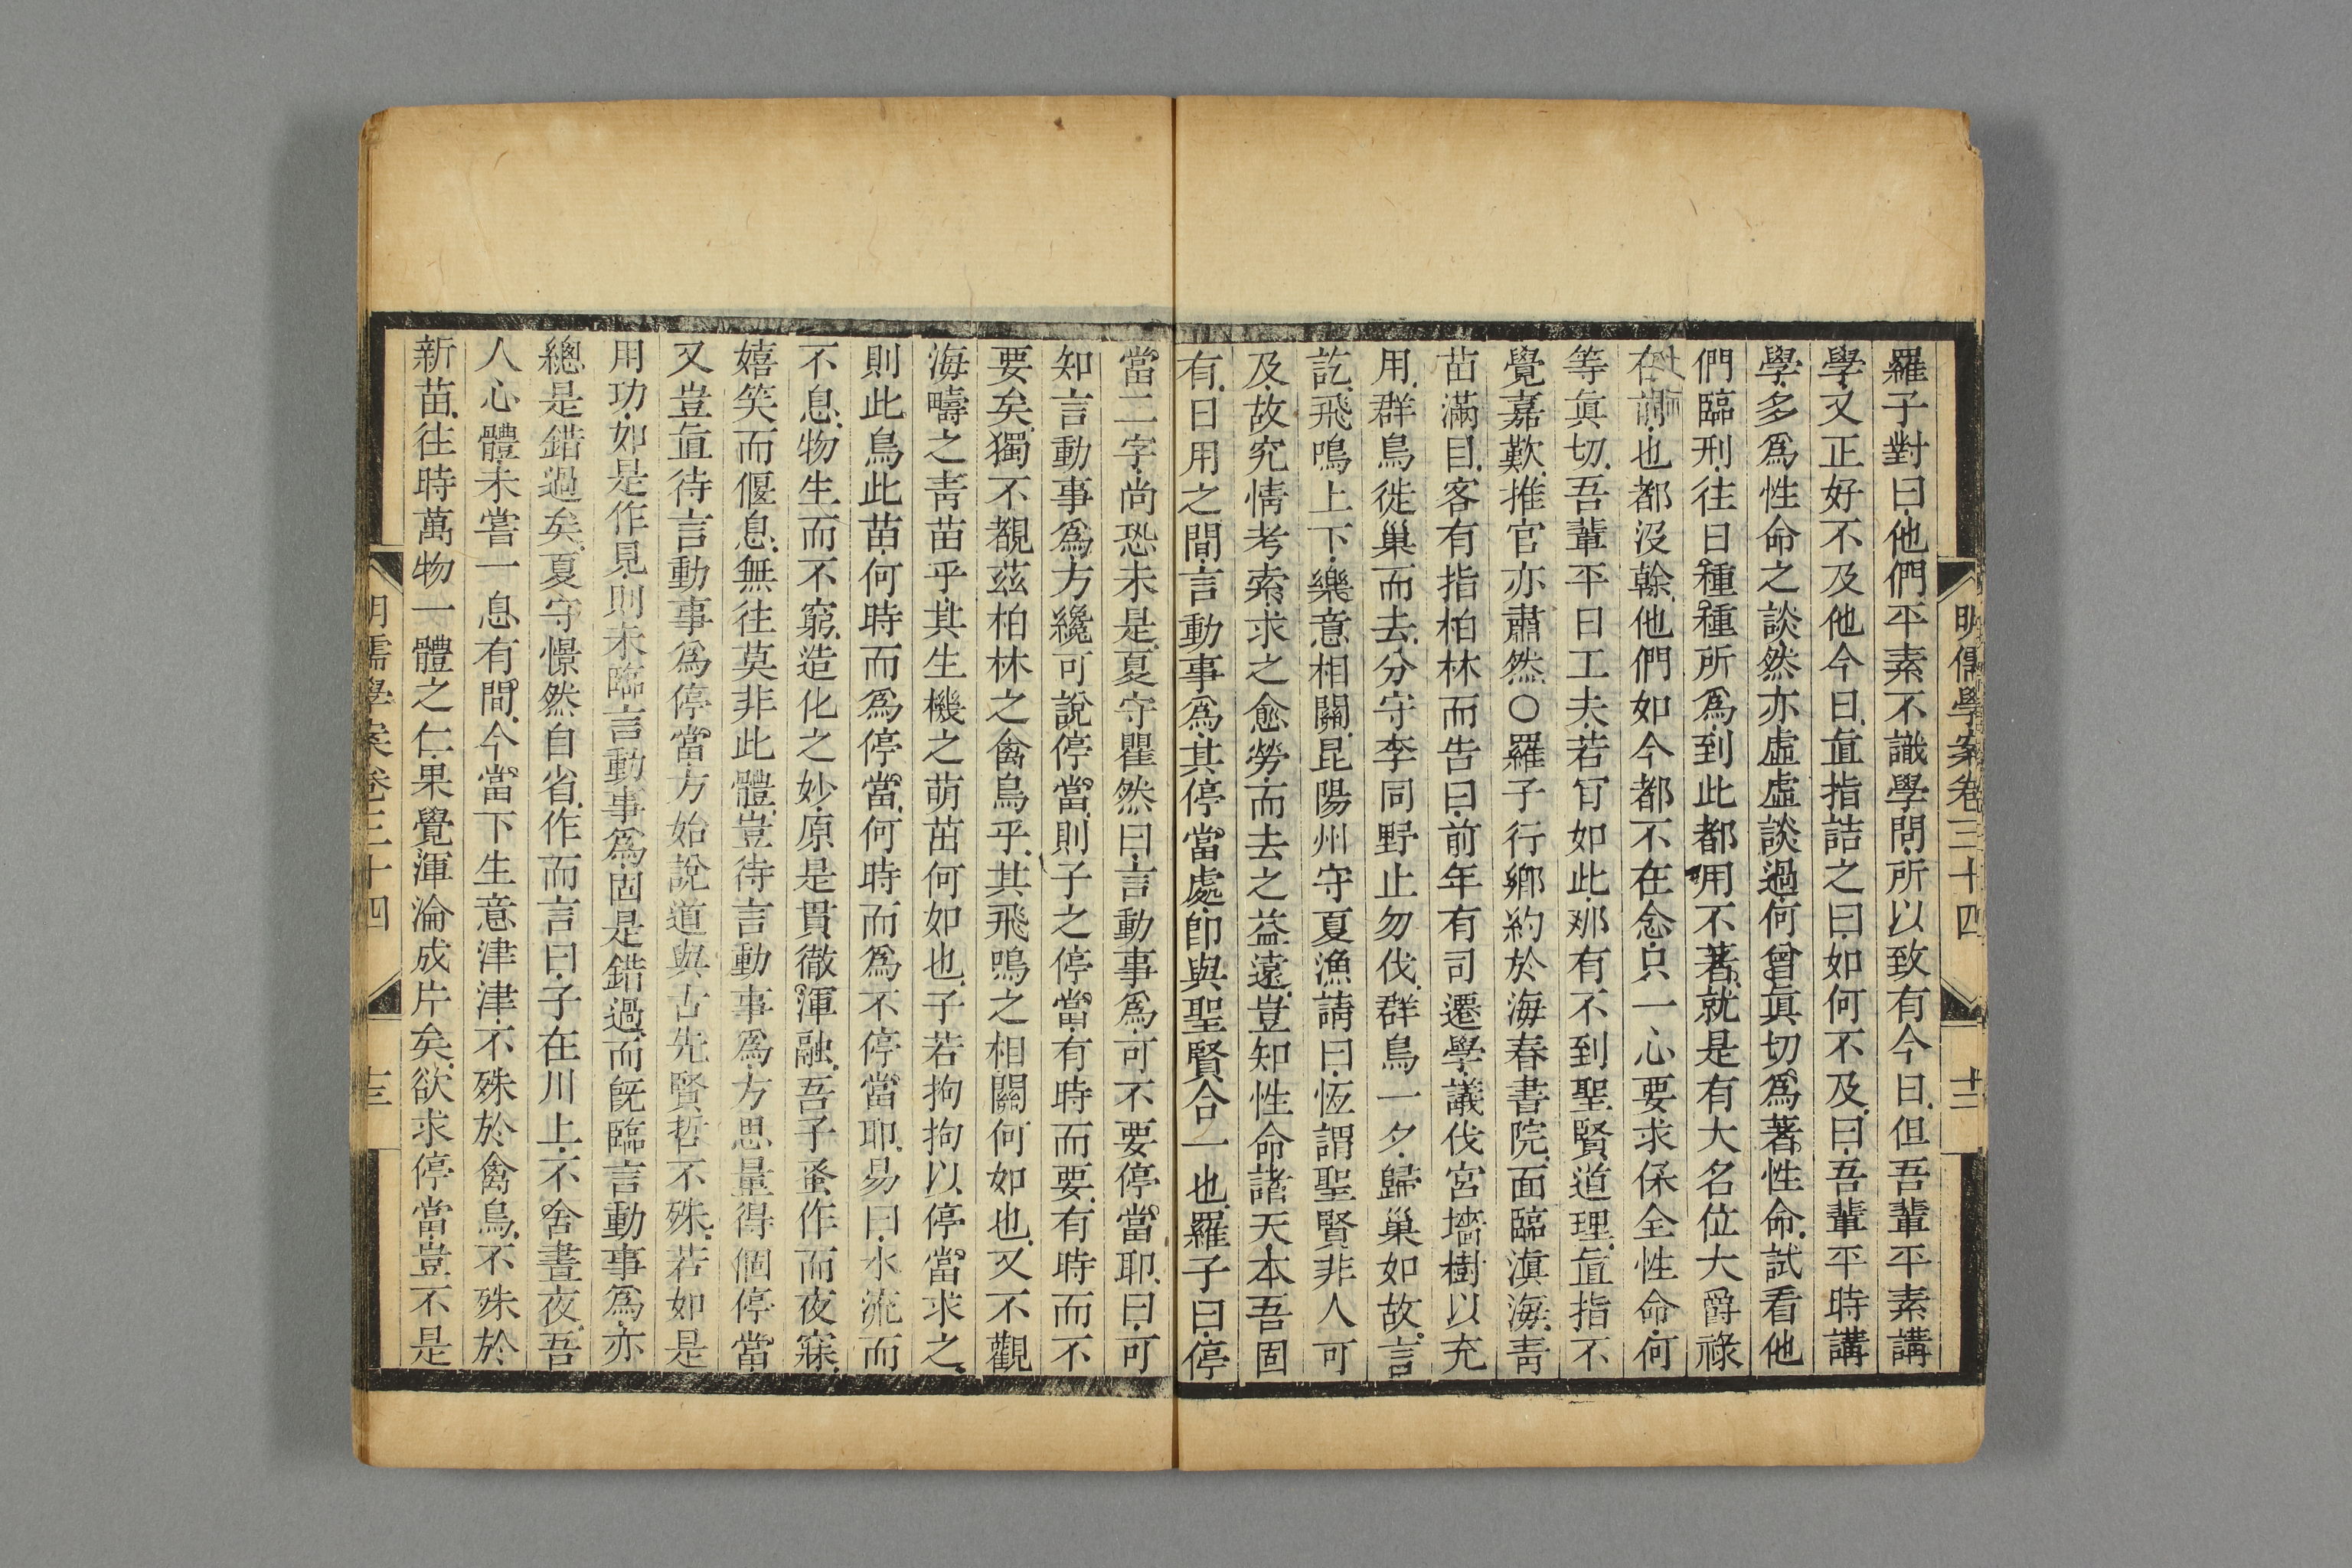 明儒學案卷三十四
十二
羅子對曰他們平素不識學問所以致有今日但吾輩平素講
學又正好不及他今日直指詰之曰如何不及曰吾輩平時講
學多爲性命之談然亦虛虛談過何曾眞切爲著性命試看他
們臨刑往日種種所爲到此都用不著就是有大名位大爵祿
在前也都沒幹他們如今都不在念只一心要求保全性命何
等眞切吾輩平日工夫若肎如此那有不到聖賢道理直指不
覺嘉歎推官亦肅然○羅子行鄉約於海春書院面臨滇海靑
苗滿目客有指柏林而告曰前年有司遷學議伐宮墻樹以充
用群鳥徙巢而去分守李同野止勿伐群鳥一夕歸巢如故言
訖飛鳴上下樂意相關昆陽州守夏漁請曰恆謂聖賢非人可
及故究情考索求之愈勞而去之益遠豈知性命諸天本吾固
有日用之間言動事爲其停當處卽與聖賢合一也羅子曰停
當二字尚恐未是夏守瞿然曰言動事爲可不要停當耶曰可
知言動事爲方纔可說停當則子之停當有時而要有時而不
要矣獨不覩茲柏林之禽鳥乎其飛鳴之相關何如也又不觀
海疇之靑苗乎其生機之萌茁何如也子若拘拘以停當求之
則此鳥此苗何時而爲停當何時而爲不停當耶易曰水流而
不息物生而不窮造化之妙原是貫徹渾融吾子蚤作而夜寐
嬉笑而偃息無往莫非此體豈待言動事爲方思量得個停當
又豈直待言動事爲停當方始說道與古先賢哲不殊若如是
用功如是作見則未臨言動事爲固是錯過而旣臨言動事爲亦
總是錯過矣夏守憬然自省作而言曰子在川上不舍晝夜吾
人心體未嘗一息有間今當下生意津津不殊於禽鳥不殊於
新苗往時萬物一體之仁果覺渾淪成片矣欲求停當豈不是
明儒學案卷三十四
十三